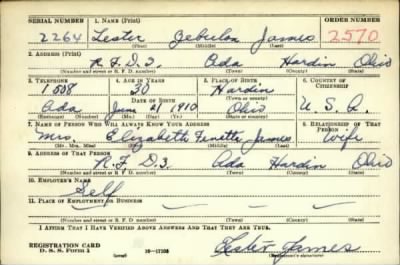 SERIAL NUMBER 1. NAME (Print) ORDER NUMBER
2264 Lester Zebulon James 2570
(First) (Middle) (Last)
2. ADDRESS (Print)
R.F.D 3. Ada Hardin Ohio
(Number and street or R. F. D. number) (Town) (County) (State)
3. TELEPHONE 4. AGE IN YEARS 5. PLACE OF BIRTH 6. COUNTRY OF CITIZENSHIP
1508 30 Hardin
DATE OF BIRTH (Town or county)
Ada June 21 1910 Ohio U.S.A.
(Exchange) (Number) (Mo.) (Day) (Yr.) (State or country)
7. NAME OF PERSON WHO WILL ALWAYS KNOW YOUR ADDRESS 8. RELATIONSHIP OF THAT PERSON
Mrs. Elizabeth James Wife
(Mr., Mrs., Miss) (First) (Middle) (Last)
9. ADDRESS OF THAT PERSON
R.F D3 Ada Hardin Ohio
(Number and street or R. F. D. number) (Town) (County) (State)
10. EMPLOYER'S NAME
Self
11. PLACE OF EMPLOYMENT OR BUSINESS
(Number and street or R. F. D. number) (Town) (County) (State)
I AFFIRM THAT I HAVE VERIFIED ABOVE ANSWERS AND THAT THEY ARE TRUE.
REGISTRATION CARD
D. S. S. Form 1 (over) Lester James
(Registrant's signature)